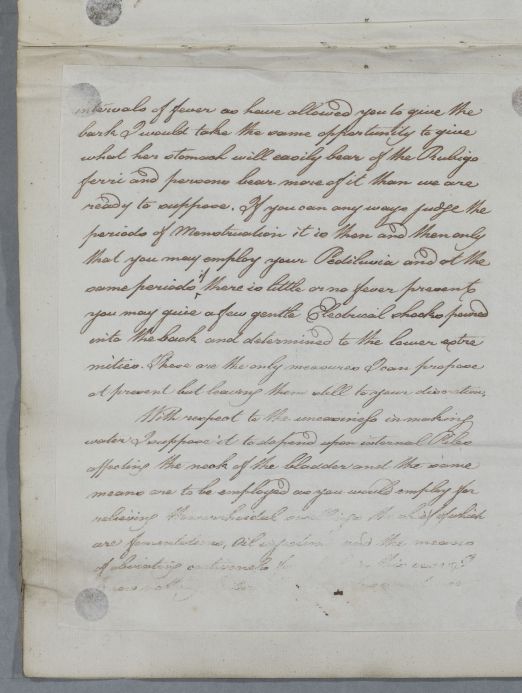 intervals of fever as have allowed you to give the
bark I would take the same opportunity to give
what her stomach will easily bear of the Rubigo
ferri and persons bear more of it than we are
ready to suppose. If you can any ways judge the
periods of Menstruation it is then and then only
that you may employ your Pediluvia and at the
same periods if there is little or no fever present
you may give a few gentle Electrical shocks passed
into the back and determined to the lower extre
mities. These are the only measures I can propose
at present but leaving them still to your discretion.
With respect to the uneasiness in making
water I suppose it to depend upon internal Piles
affecting the neck of the bladder and the same
means are to be employed as you would employ for
relieving Hemorrhoidal swellings the chief of which
are fomentations, and the means
of obviating costiveness